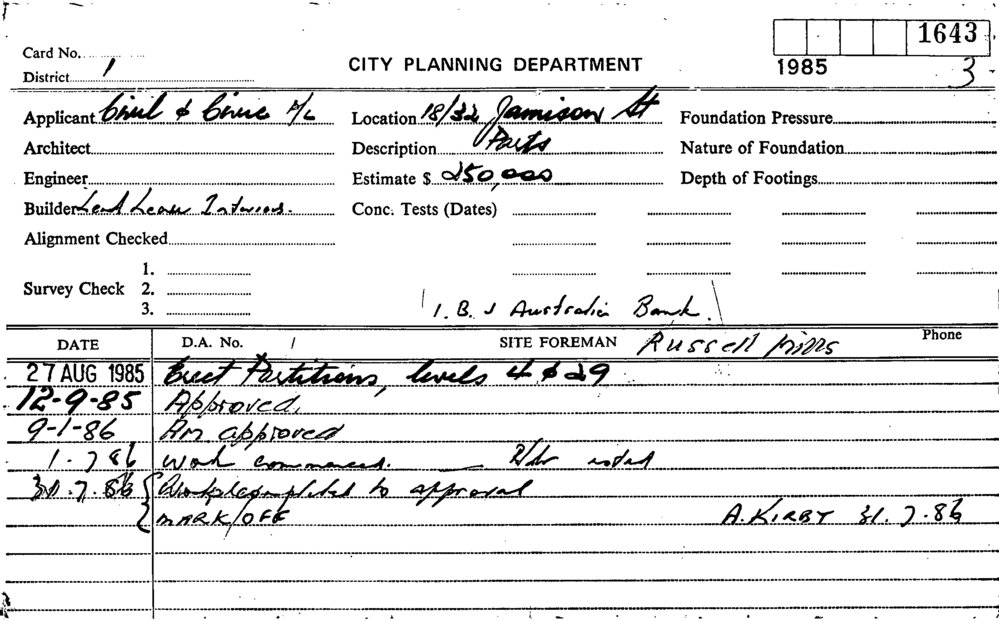 1643
Card No.
CITY PLANNING DEPARTMENT
1985 3
District 1
Applicant Civil & Civic P/L Location 18/32 Jamison St Foundation Pressure
Architect Description Parts Nature of Foundation
Engineer Estimate $ 250,000 Depth of Footings
Builder Lend Lease Interiors. Conc. Tests (Dates)
Alignment Checked
1.
Survey Check 2.
3. I.B.J Australia Bank.
DATE D.A. No. / SITE FOREMAN Russell Phone
27 AUG 1985 Erect Partitions, levels 4 & 29
12-9-85 Approved.
9-1-86 Am approved
1.7.86 Work commenced. noted
31.7.86 Work completed to approval
MARK/OFF A. KIRBY 31.7.86